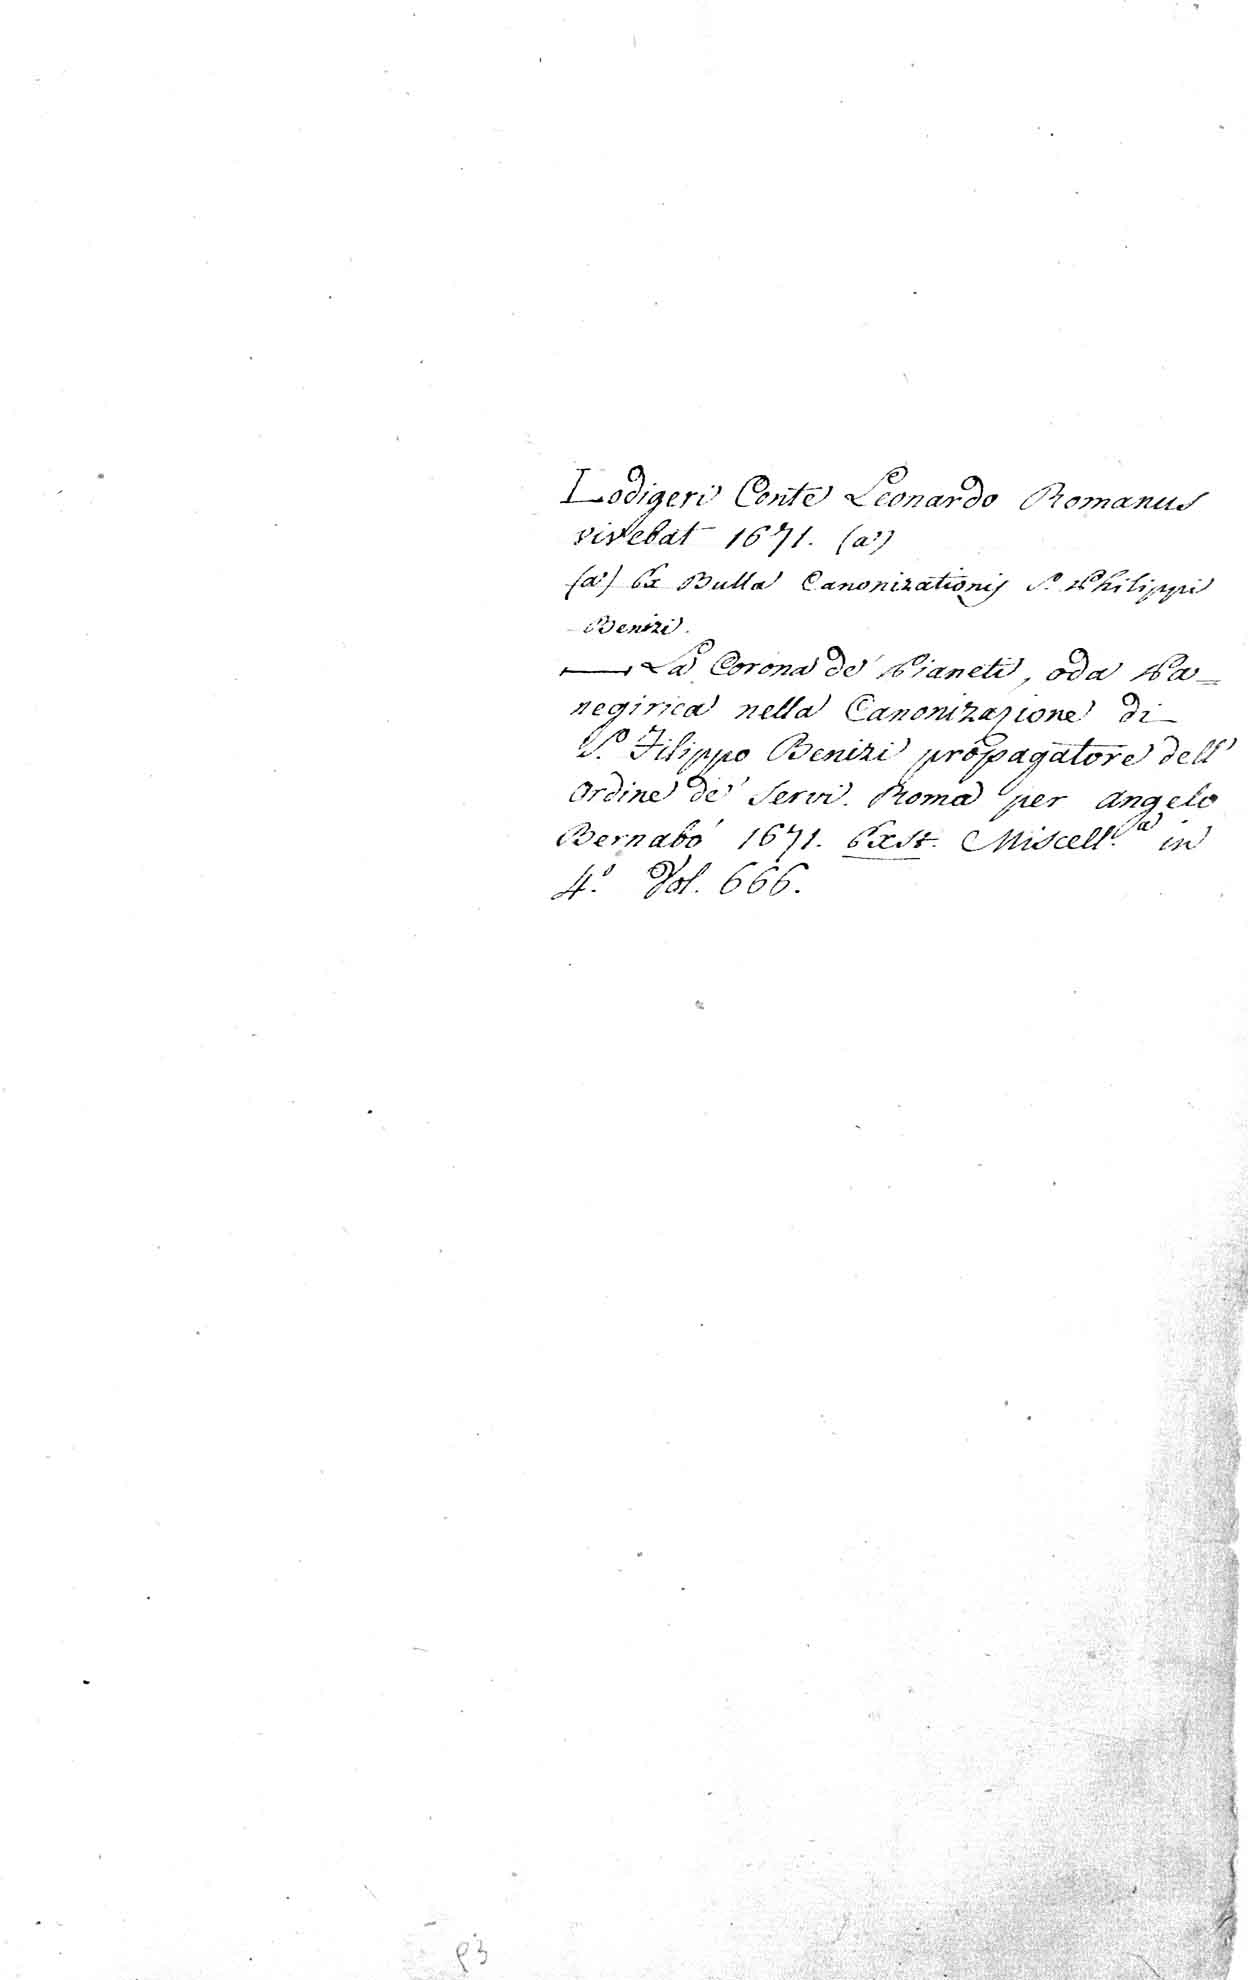 Lodigeri Conte Leonardo Romanus
vivebat 1671. (a)
(a) Ex Bulla Canonizationis S. Philippi
Benizi.
— La Corona de' Pianeti, oda Pa=
negirica nella Canonizazione di
S. Filippo Benizi propagatore dell'
Ordine de' Servi. Roma per Angelo
Bernabò 1671. Exst. Miscell.ª in
4.º Vol. 666.
93